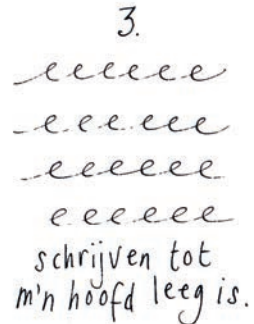 3.
eeeeee
e e eeee
eeeeee
e eeeee
schrijven tot
m'n hoofd leeg is.